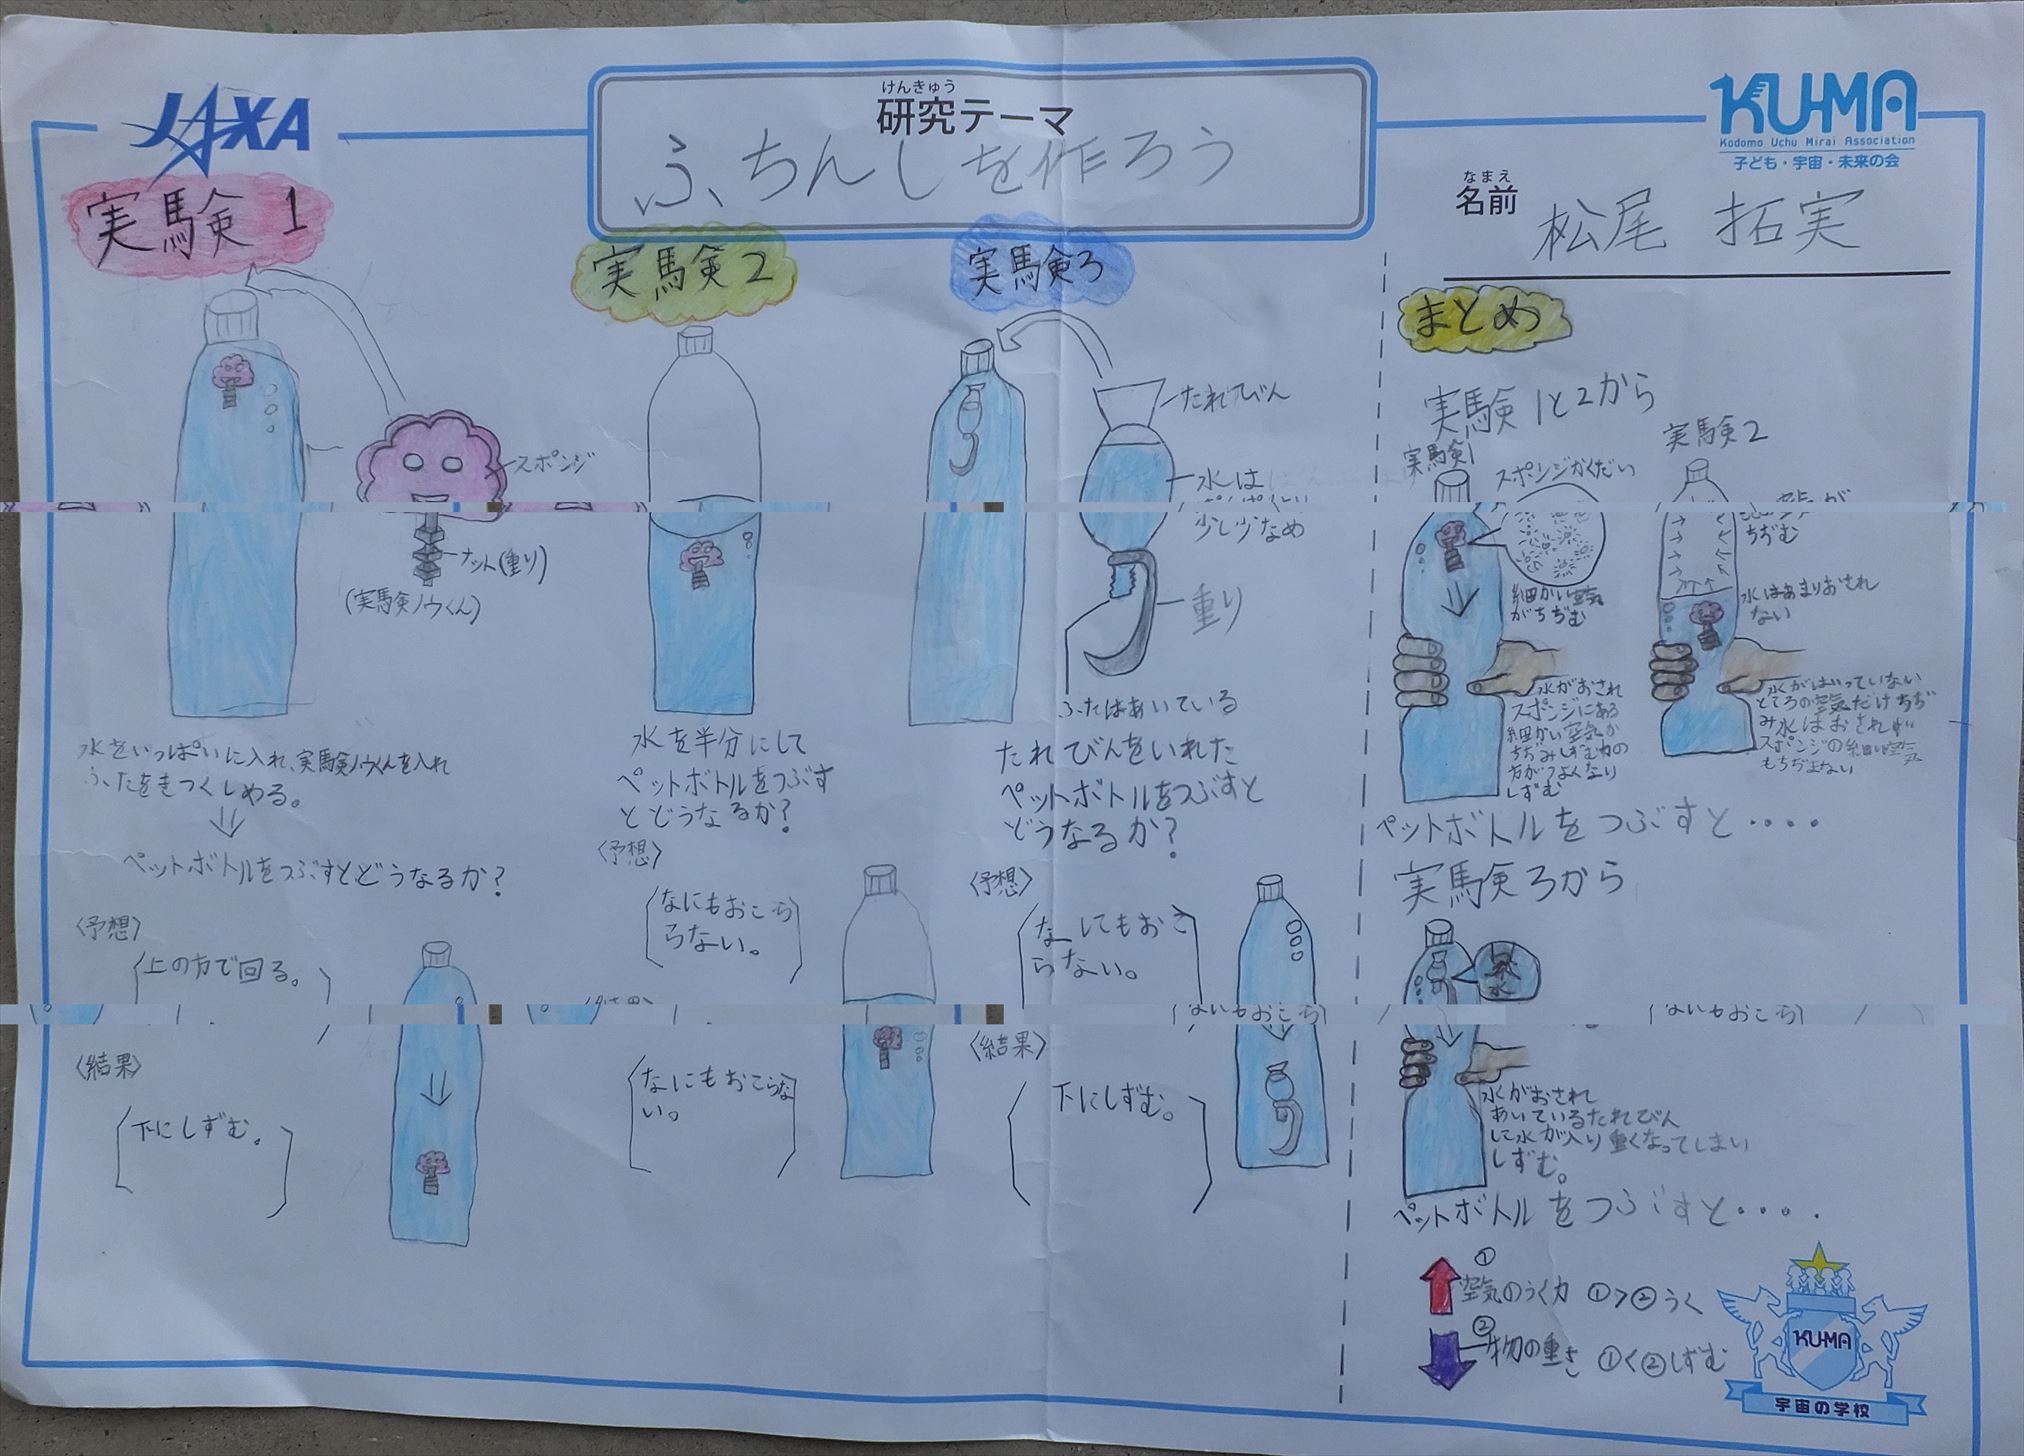 JAXA
けんきゅう
研究テーマ
ふちんしを作ろう
KUMA
Kodomo Uchu Mirai Association
子ども・宇宙・未来の会
なまえ
名前
松尾 拓実
実験1
スポンジ
ナット(重り)
(実験ノウくん)
水をいっぱいに入れ、実験ノウくんを入れ
ふたをきつくしめる。
ペットボトルをつぶすとどうなるか?
〈予想〉
上の方で回る。
〈結果〉
下にしずむ。
実験2
水を半分にして
ペットボトルをつぶす
とどうなるか?
〈予想〉
なにもおこら
らない。
なにもおこらな
い。
実験3
たれびん
水は
少し少なめ
重り
ふたはあいている
たれびんをいれた
ペットボトルをつぶすと
どうなるか?
〈予想〉
らない。
〈結果〉
下にしずむ。
まとめ
実験1と2から
実験1
スポンジかくだい
細かい空気
がちぢむ
水がおされ
スポンジにある
細かい空気が
ちぢみしずむ力の
方がつよくなり
しずむ
実験2
空気が
ちぢむ
水はあまりおされ
ない
水がはいっていない
ところの空気だけちぢ
み水はおされず
スポンジの細かい空気
もちぢまない
ペットボトルをつぶすと・・・・
実験3から
水
水がおされ
あいているたれびん
に水が入り重くなってしまい
しずむ。
ペットボトルをつぶすと・・・・
①
空気のうく力 ①>②うく
②
物の重さ ①<②しずむ
KUMA
宇宙の学校